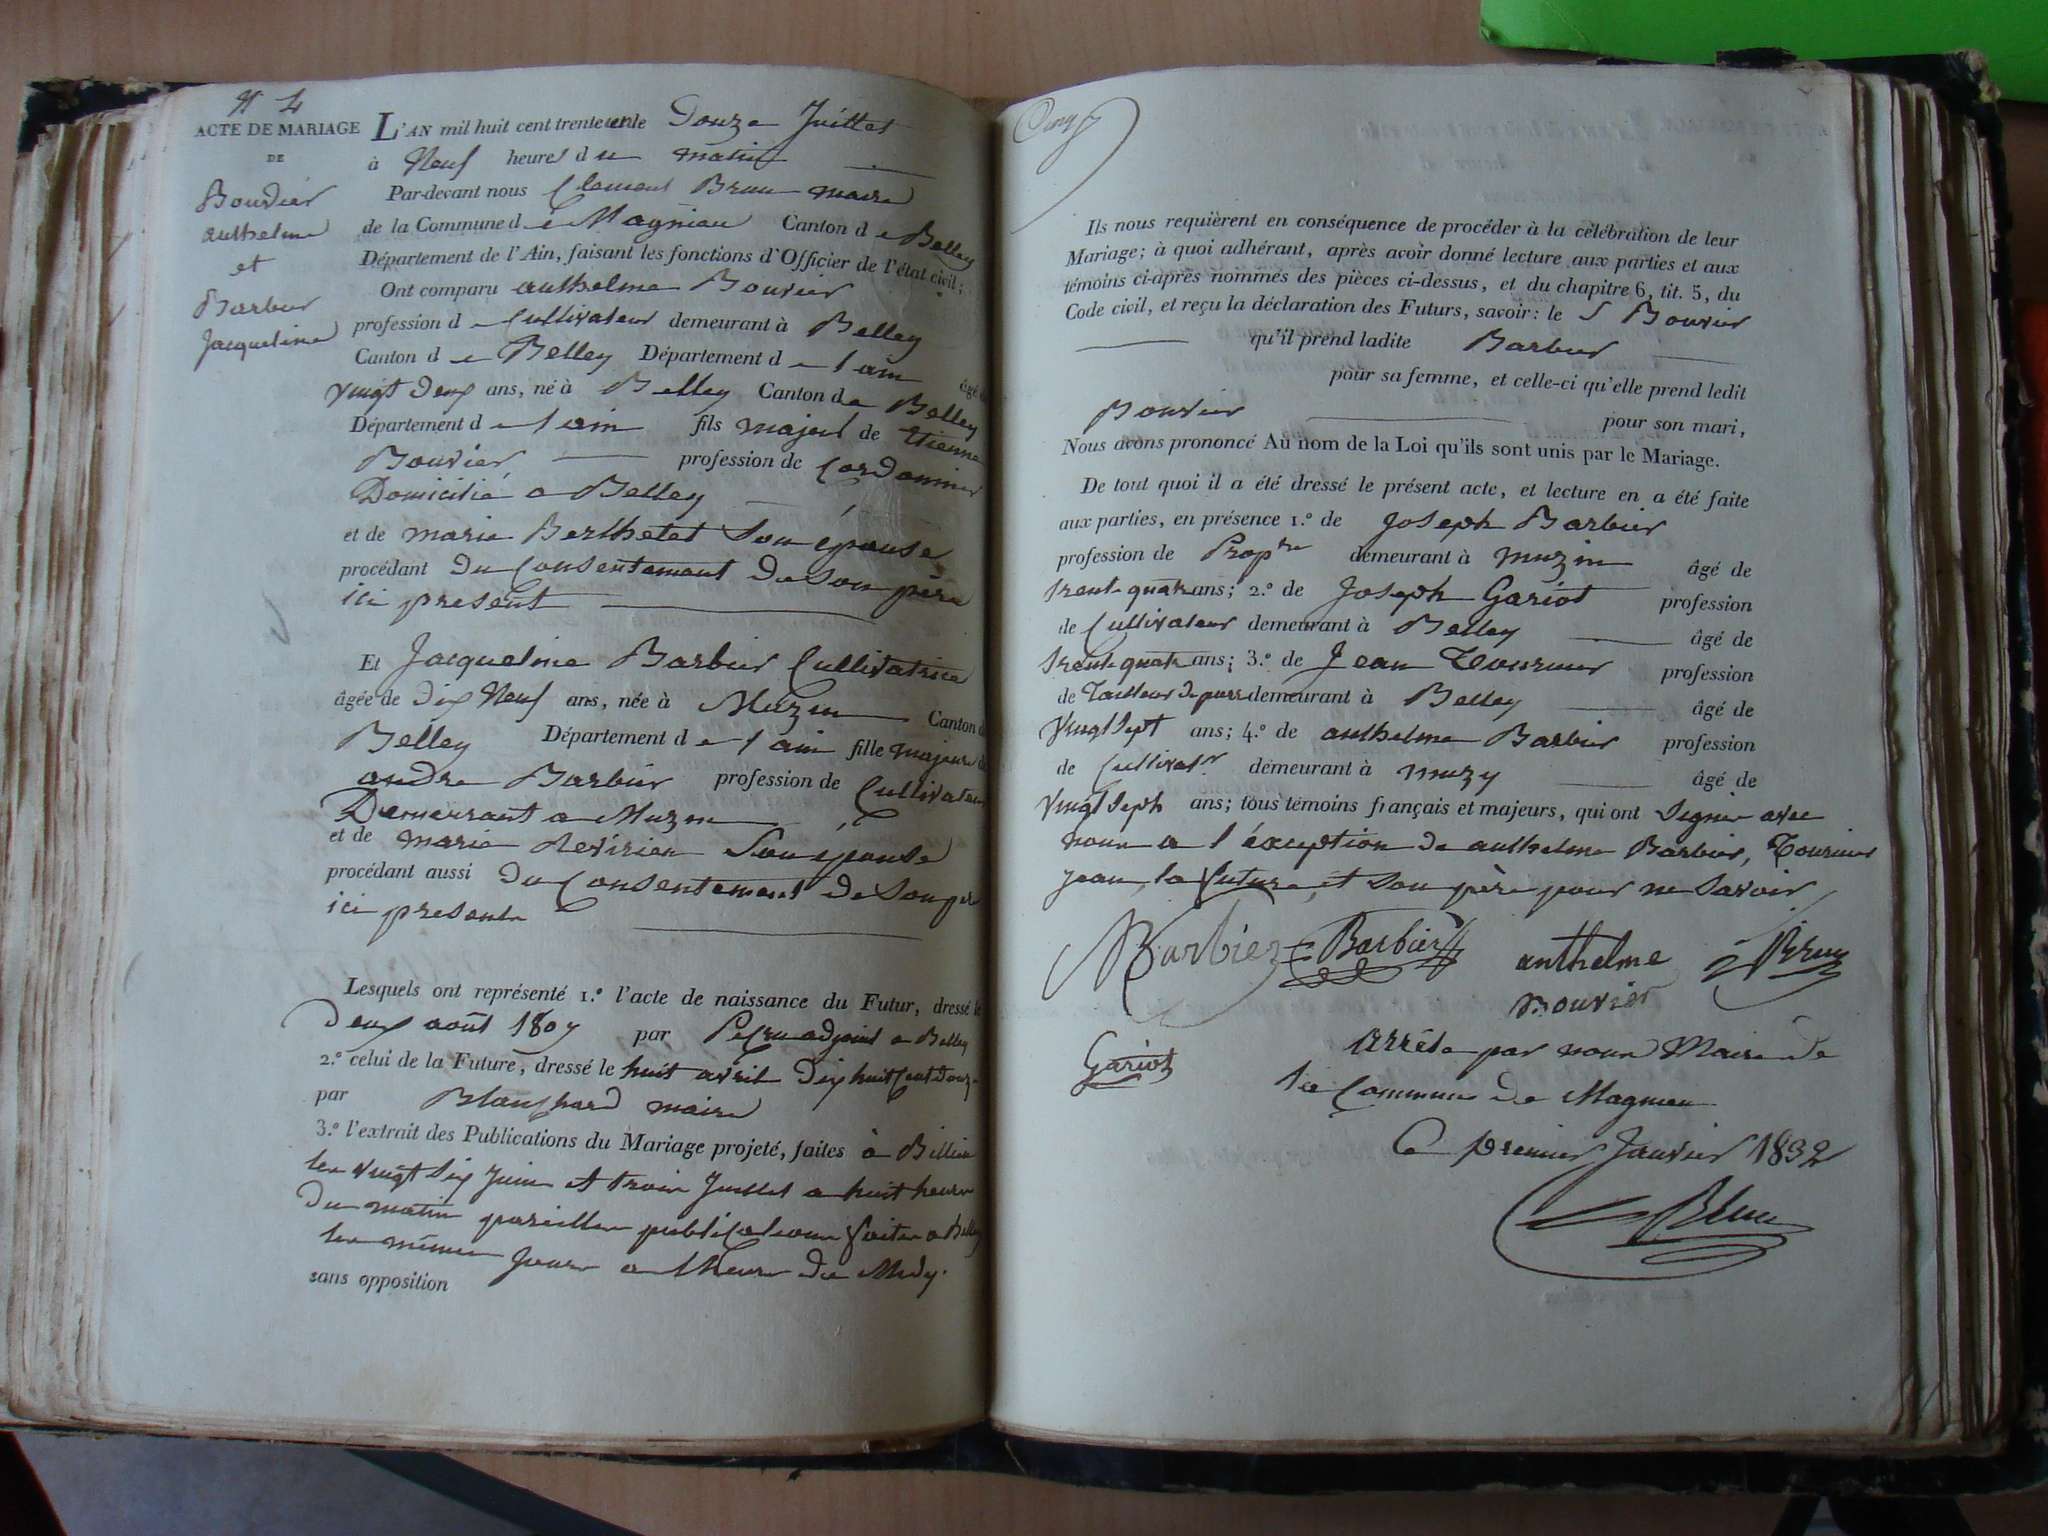 N° 4
ACTE DE MARIAGE
DE
Bouvier
anthelme
et
Barbier
Jacqueline
L'AN mil huit cent trente un le Douze Juillet
à Neuf heures du matin
Par-devant nous Clement Brun maire
de la Commune de Magnieu Canton de Belley
Département de l'Ain, faisant les fonctions d'Officier de l'état civil;
Ont comparu anthelme Bouvier
profession de Cultivateur demeurant à Belley
Canton de Belley Département de l ain âgé d
vingt deux ans, né à Belley Canton de Belley
Département de l ain fils majeur de Etienne
Bouvier profession de Cordonnier
Domicilié a Belley
et de marie Berthetet Son épouse
procédant du Consentement de Son père
ici present
Et Jacqueline Barbier Cultivatrice
âgée de dix Neuf ans, née à Muzin Canton d
Belley Département de l ain fille majeure d
andre Barbier profession de Cultivateur
Demeurant a Muzin
et de marie Révirieu Son épouse
procédant aussi du Consentement de Son père
ici presente
Lesquels ont représenté 1.° l'acte de naissance du Futur, dressé le
Deux août 1807 par adjoint a Belley
2.° celui de la Future, dressé le huit avril dix huit Cent Douze
par Blanchard maire
3.° l'extrait des Publications du Mariage projeté, faites à
les vingt Six Juin et trois Juillet a huit heures
Du matin pareilles publications faites a Belley
les mêmes Jours a l heure de Midy.
sans opposition
Ils nous requièrent en conséquence de procéder à la célébration de leur
Mariage; à quoi adhérant, après avoir donné lecture aux parties et aux
témoins ci-après nommés des pièces ci-dessus, et du chapitre 6, tit. 5, du
Code civil, et reçu la déclaration des Futurs, savoir: le S Bouvier
qu'il prend ladite Barbier
pour sa femme, et celle-ci qu'elle prend ledit
Bouvier pour son mari,
Nous avons prononcé Au nom de la Loi qu'ils sont unis par le Mariage.
De tout quoi il a été dressé le présent acte, et lecture en a été faite
aux parties, en présence 1.° de Joseph Barbier
profession de Prop.re demeurant à muzin âgé de
trente quatre ans; 2.° de Joseph Gariot profession
de Cultivateur demeurant à Belley âgé de
trente quatre ans; 3.° de Jean Tournier profession
de Tailleur de pierre demeurant à Belley âgé de
vingt Sept ans; 4.° de anthelme Barbier profession
de Cultivat.r demeurant à muzy âgé de
vingt Seph ans; tous témoins français et majeurs, qui ont Signer avec
nous a l éxception de anthelme Barbier, Tournier
jean, la future, et Son père pour ne Savoir
Barbier Barbier anthelme Brun
Bouvier
Gariot
Arrêté par nous Maire de
la Commune de Magnieu
Ce premier Janvier 1832
Brun